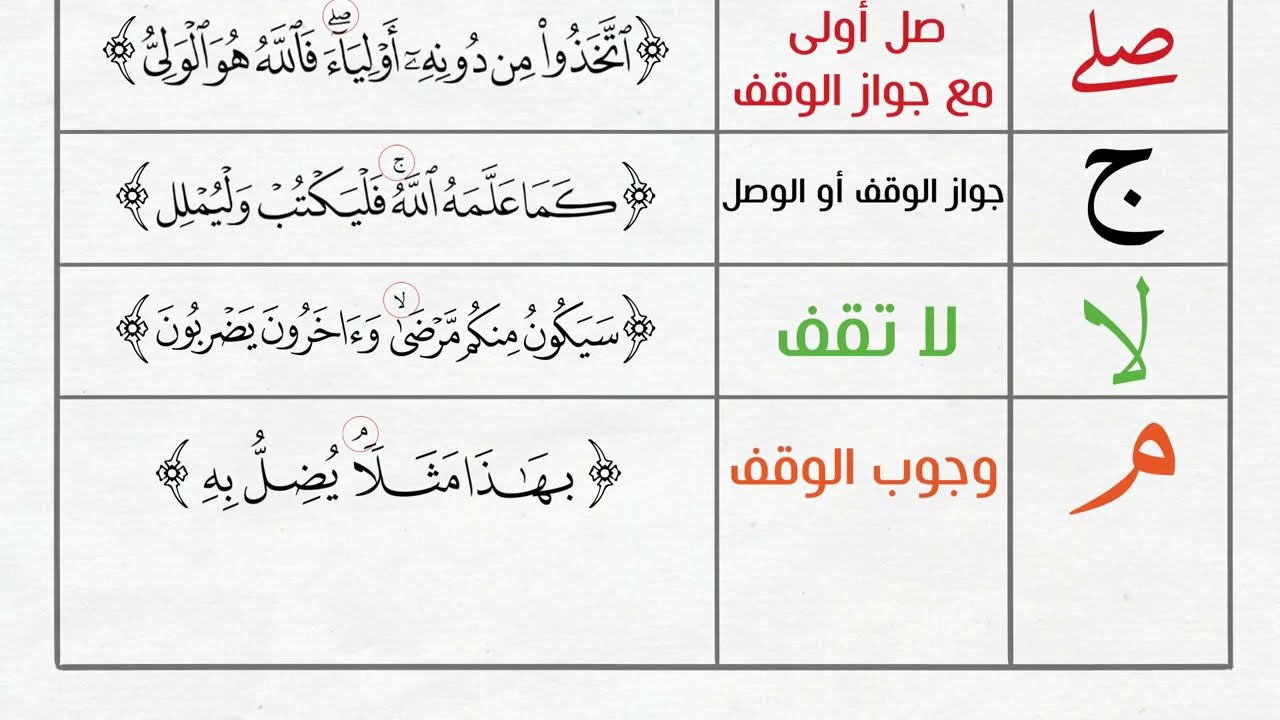 صلے
صل أولى
مع جواز الوقف
﴿ٱتَّخَذُوا۟ مِن دُونِهِۦٓ أَوْلِيَآءَ ۖ فَٱللَّهُ هُوَ ٱلْوَلِىُّ﴾
ج
جواز الوقف أو الوصل
﴿كَمَا عَلَّمَهُ ٱللَّهُ ۚ فَلْيَكْتُبْ وَلْيُمْلِلِ﴾
لا
لا تقف
﴿سَيَكُونُ مِنكُم مَّرْضَىٰ ۙ وَءَاخَرُونَ يَضْرِبُونَ﴾
م
وجوب الوقف
﴿بِهَـٰذَا مَثَلًا ۘ يُضِلُّ بِهِ﴾